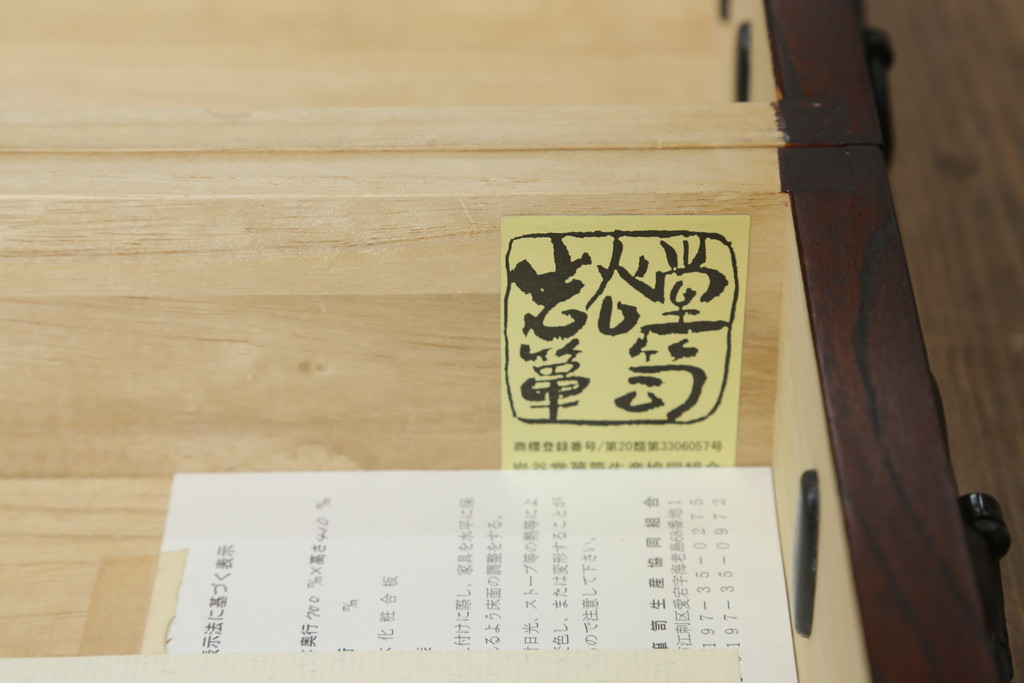 岩谷堂
箪笥
商標登録番号/第20類第3306057号
岩谷堂箪笥生産協同組合
表示法に基づく表示
奥行700㎜×高さ440㎜
化粧合板
付けに際し、家具を水平に保
るよう床面の調整をする。
日光、ストーブ等の熱等によ
色し、または変形することが
ので注意して下さい。
箪笥生産協同組合
江刺区愛宕字海老島68番地1
197-35-0275
197-35-0972